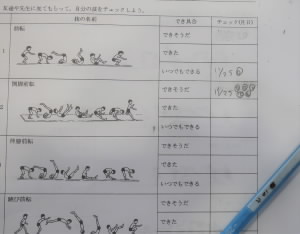 友達や先生に見てもらって、自分の技をチェックしよう。
技の名前 でき具合 チェック(月日)
1 前転 できそうだ
できた
いつでもできる 11/25
2 開脚前転 できそうだ 11/25
できた
いつでもできる
3 伸膝前転 できそうだ
できた
いつでもできる
跳び前転 できそうだ
できた